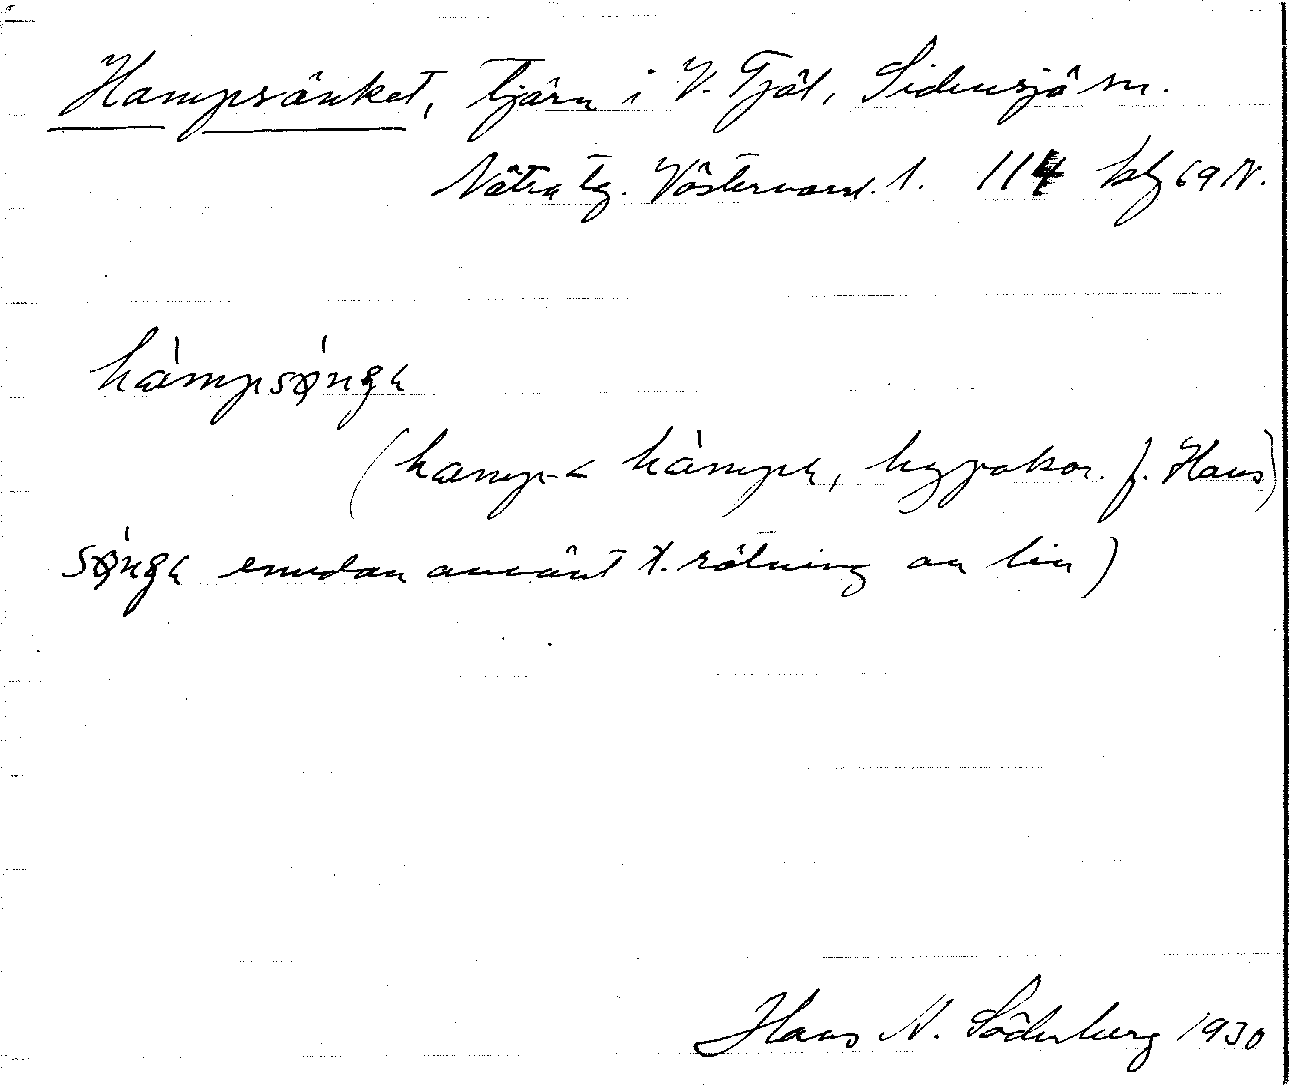 Hampsänket, tjärn i V. Tjäl, Sidensjö sn.
Nätra tg. Västernorrl. l. 114 kbl 69 N.
hàmpsø̀nga
(hamp < hàmpa, hypokor. f. Hans)
sø̀nga emedan använt t. rötning av lin)
Hans N. Söderberg 1930